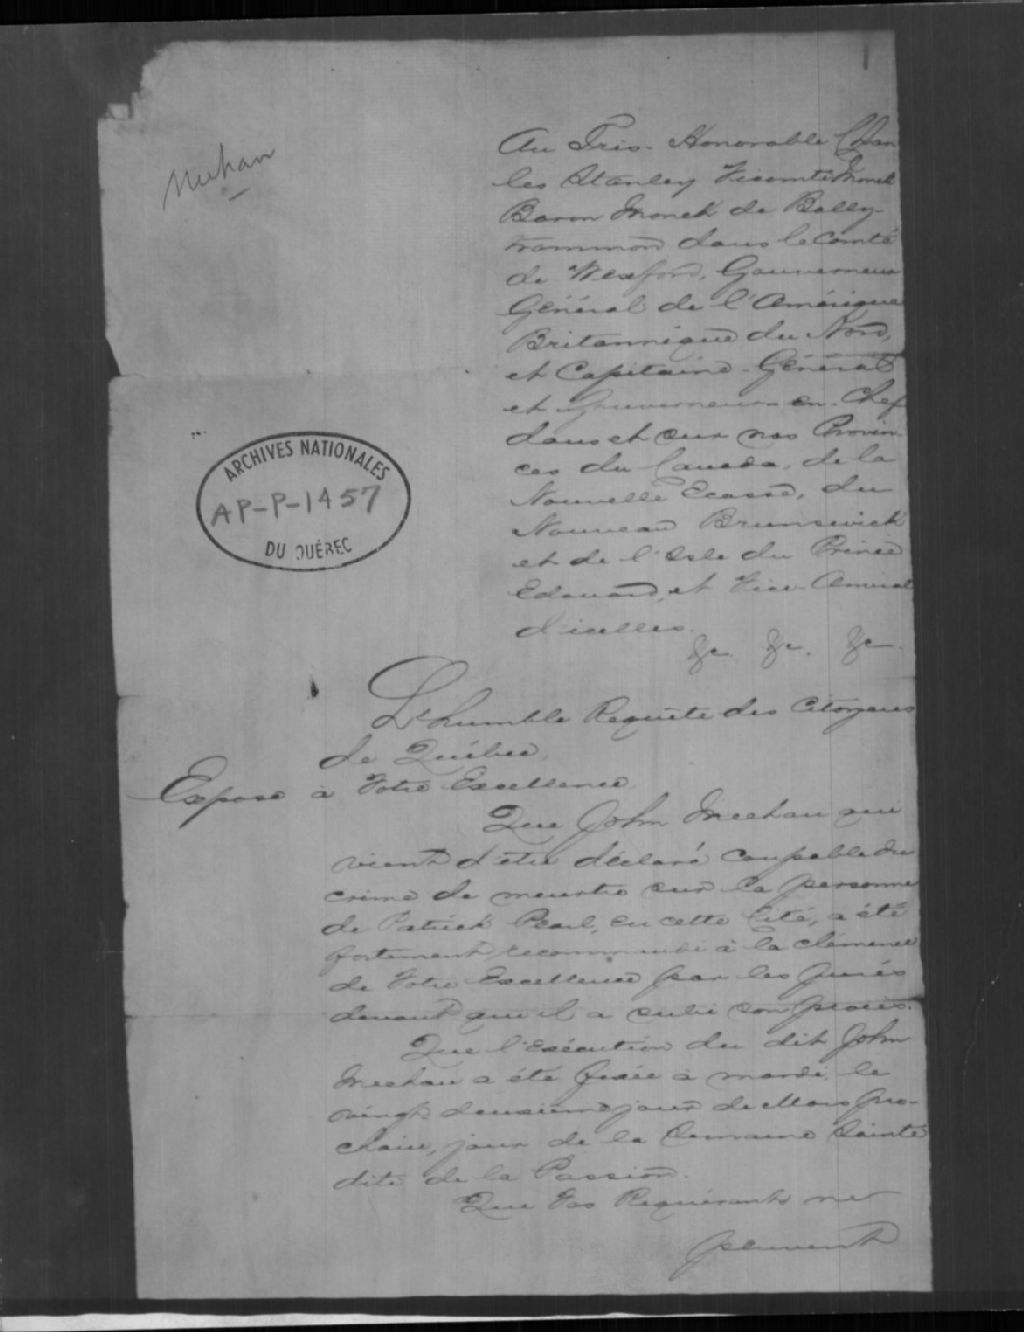 Meehan
Au Très-Honorable Char
les Stanley Vicomte Monck
Baron Monck de Bally-
trammon dans le Comté
de Wexford, Gouverneur
Général de l'Amérique
Britannique du Nord,
et Capitaine-Général
et Gouverneur-en-Chef
dans et sur nos Provin
ces du Canada, de la
Nouvelle Ecosse, du
Nouveau Brunswick
et de l'Isle du Prince
Edouard, et Vice-Amiral
d'icelles.
&c. &c. &c.
ARCHIVES NATIONALES
AP-P-1457
DU QUÉBEC
L'humble Requête des Citoyens
de Québec,
Expose à Votre Excellence,
Que John Meehan qui
vient d'être déclaré coupable du
crime de meurtre sur la personne
de Patrick Pearl, en cette Cité, a été
fortement recommandé à la clémence
de Votre Excellence par les Jurés
devant qui il a subi son procès.
Que l'Exécution du dit John
Meehan a été fixée à mardi le
vingt deuxième jour de Mars pro-
chain, jour de la Semaine Sainte
dite de la Passion.
Que Vos Requérants ne
peuvent